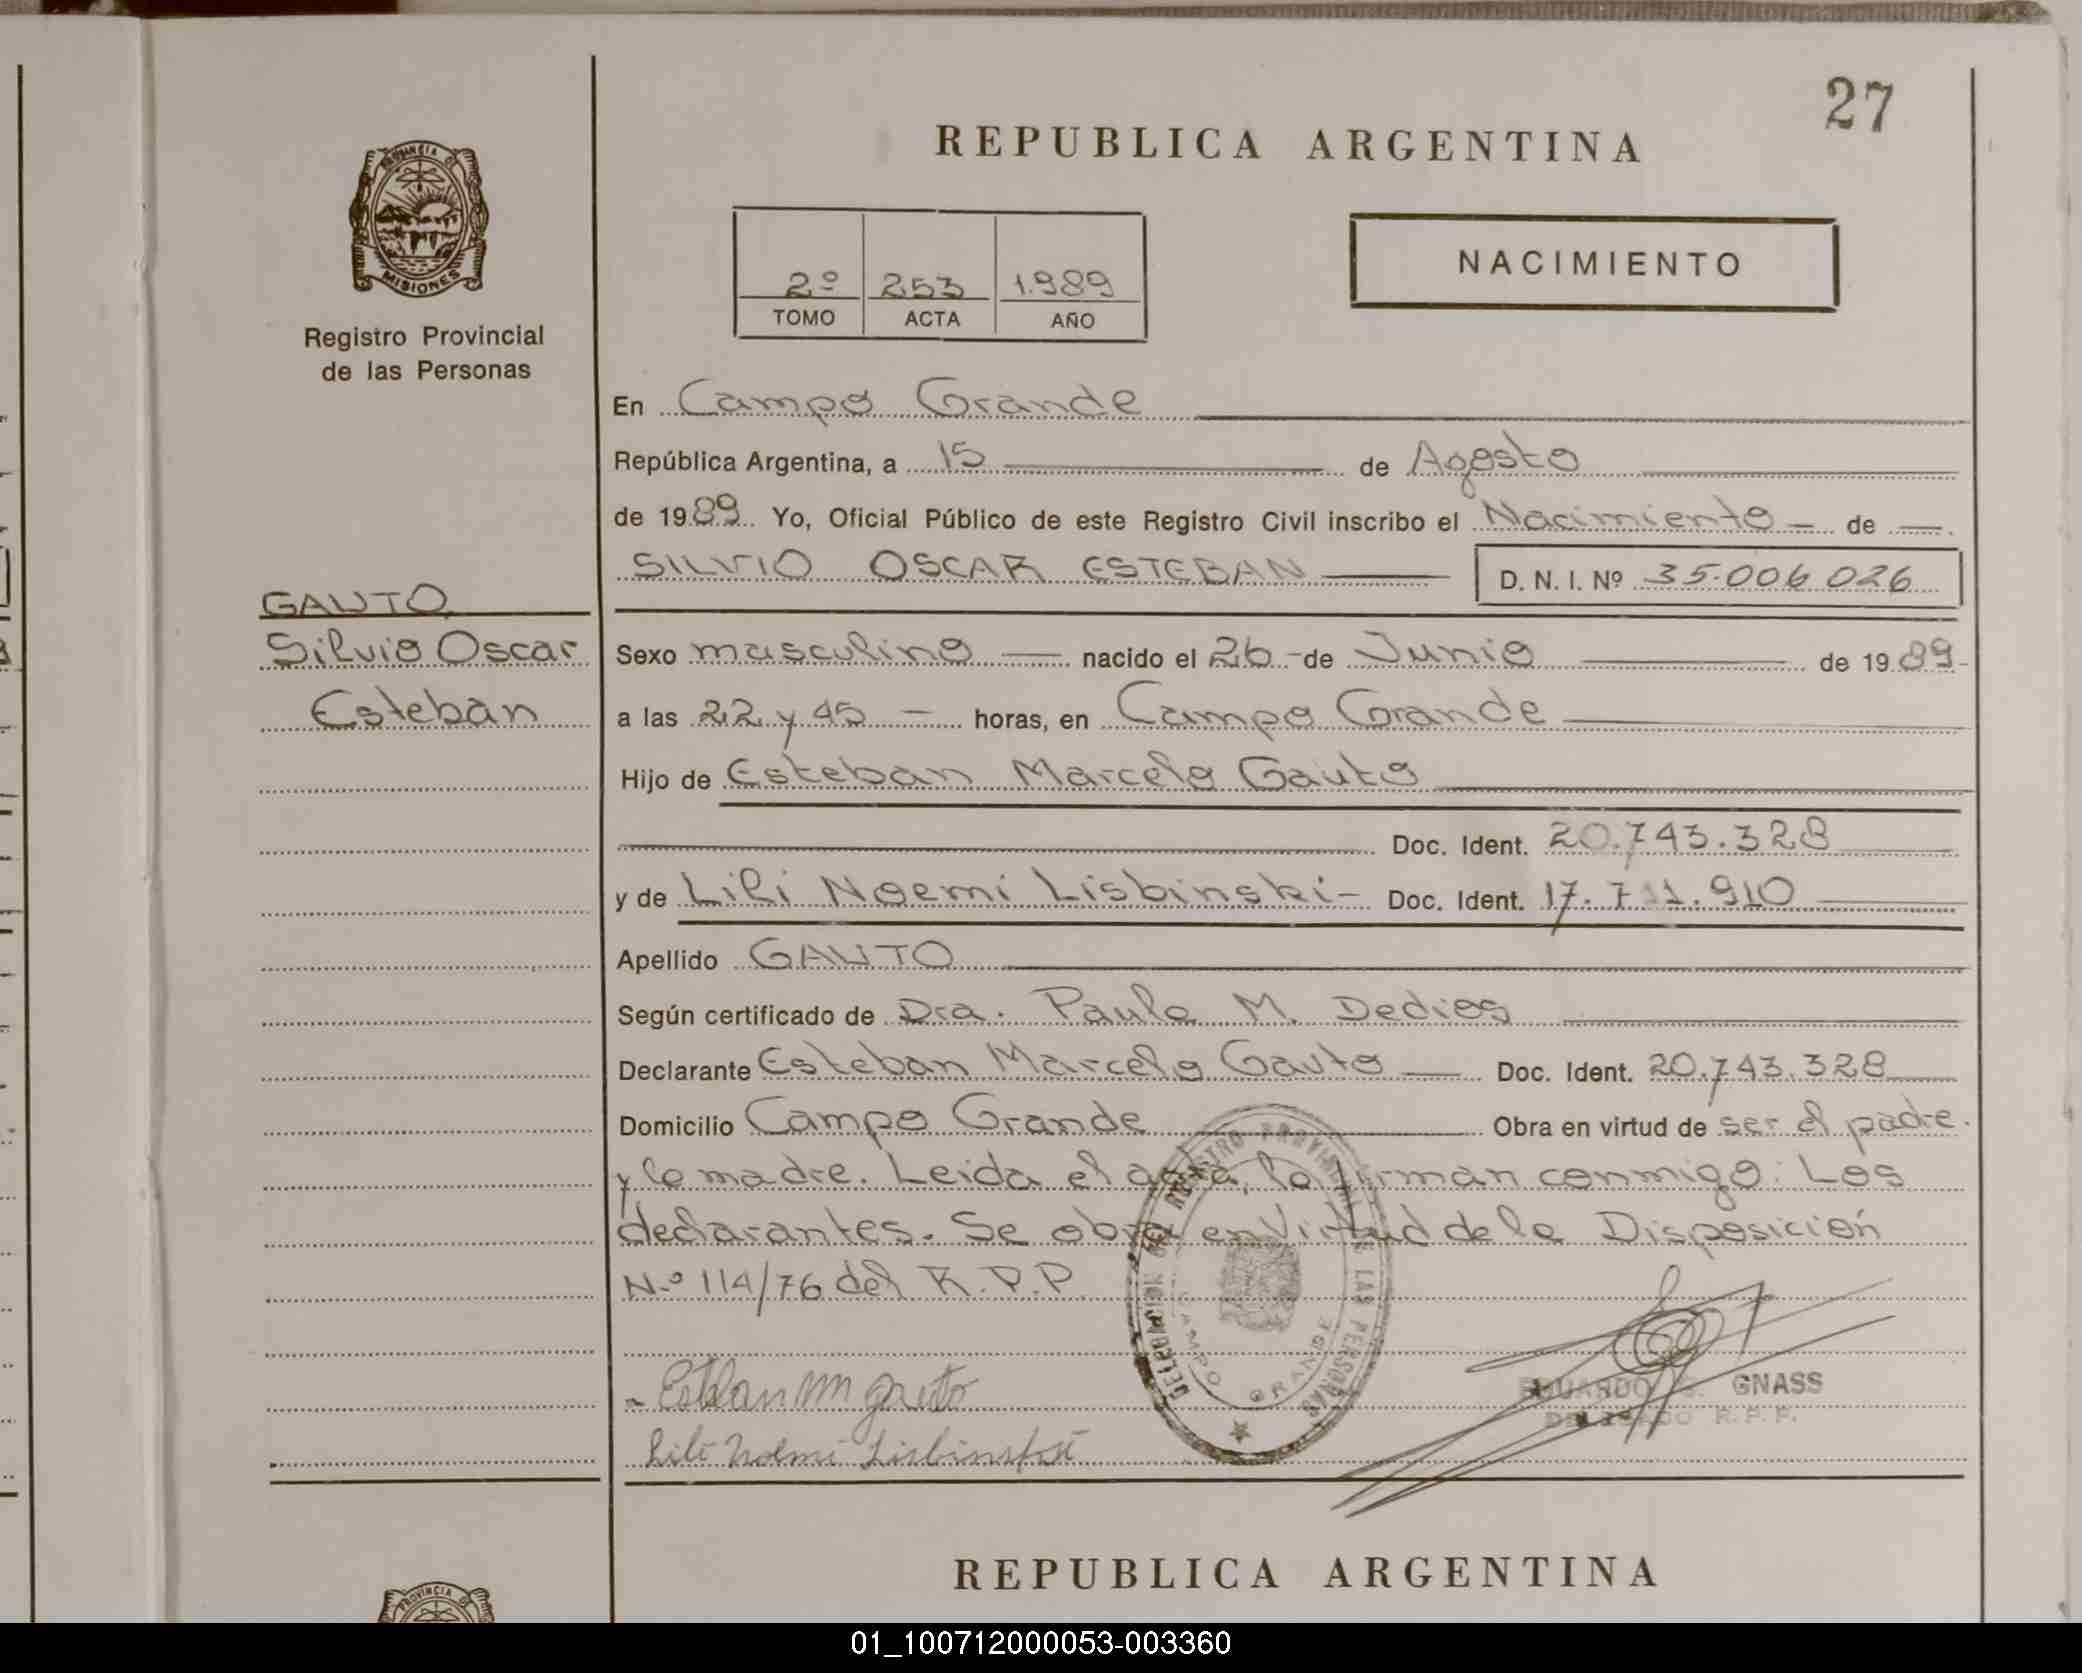 27
REPUBLICA ARGENTINA
PROVINCIA DE
MISIONES
Registro Provincial
de las Personas
2º 253 1.989
TOMO ACTA AÑO
NACIMIENTO
En Campo Grande
República Argentina, a 15 de Agosto
de 1989 Yo, Oficial Público de este Registro Civil inscribo el Nacimiento de
SILVIO OSCAR ESTEBAN D. N. I. Nº 35.006.026
GAUTO
Silvio Oscar
Esteban
Sexo masculino nacido el 26 de Junio de 1989
a las 22 y 45 horas, en Campo Grande
Hijo de Esteban Marcelo Gauto
Doc. Ident. 20.743.328
y de Lili Noemi Lisbinski Doc. Ident. 17.711.910
Apellido GAUTO
Según certificado de Dra. Paula M. Dedios
Declarante Esteban Marcelo Gauto Doc. Ident. 20.743.328
Domicilio Campo Grande Obra en virtud de ser el padre
y la madre. Leida el acta, la firman conmigo: Los
declarantes. Se obra en virtud de la Disposición
N.º 114/76 del R.P.P.
DELEGACION DEL REGISTRO PROVINCIAL DE LAS PERSONAS
CAMPO GRANDE
Esteban M Gauto
Lili Noemi Lisbinski
EDUARDO S. GNASS
DELEGADO R.P.P.
REPUBLICA ARGENTINA
PROVINCIA DE
01_100712000053-003360